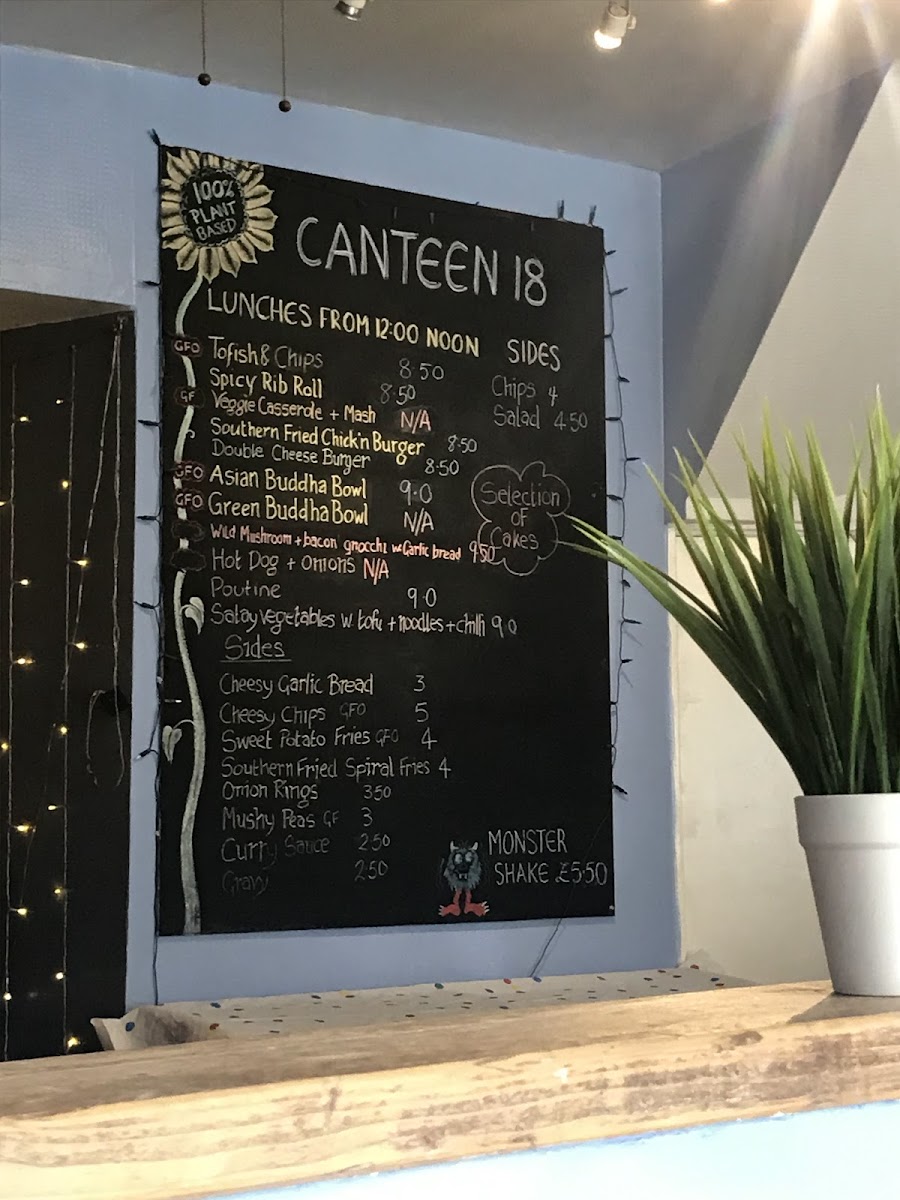 100%
PLANT
BASED
CANTEEN 18
LUNCHES FROM 12:00 NOON
GFO Tofish & Chips 8.50
Spicy Rib Roll 8.50
GF Veggie Casserole + Mash N/A
Southern Fried Chick'n Burger 8.50
Double Cheese Burger 8.50
GFO Asian Buddha Bowl 9.0
GFO Green Buddha Bowl N/A
Wild Mushroom + bacon gnocchi w. Garlic bread 9.50
Hot Dog + onions N/A
Poutine 9.0
Satay vegetables w. tofu + noodles + chilli 9.0
Sides
Cheesy Garlic Bread 3
Cheesy Chips GFO 5
Sweet Potato Fries GFO 4
Southern Fried Spiral Fries 4
Onion Rings 3.50
Mushy Peas GF 3
Curry Sauce 2.50
Gravy 2.50
SIDES
Chips 4
Salad 4.50
Selection
OF
Cakes
MONSTER
SHAKE £5.50